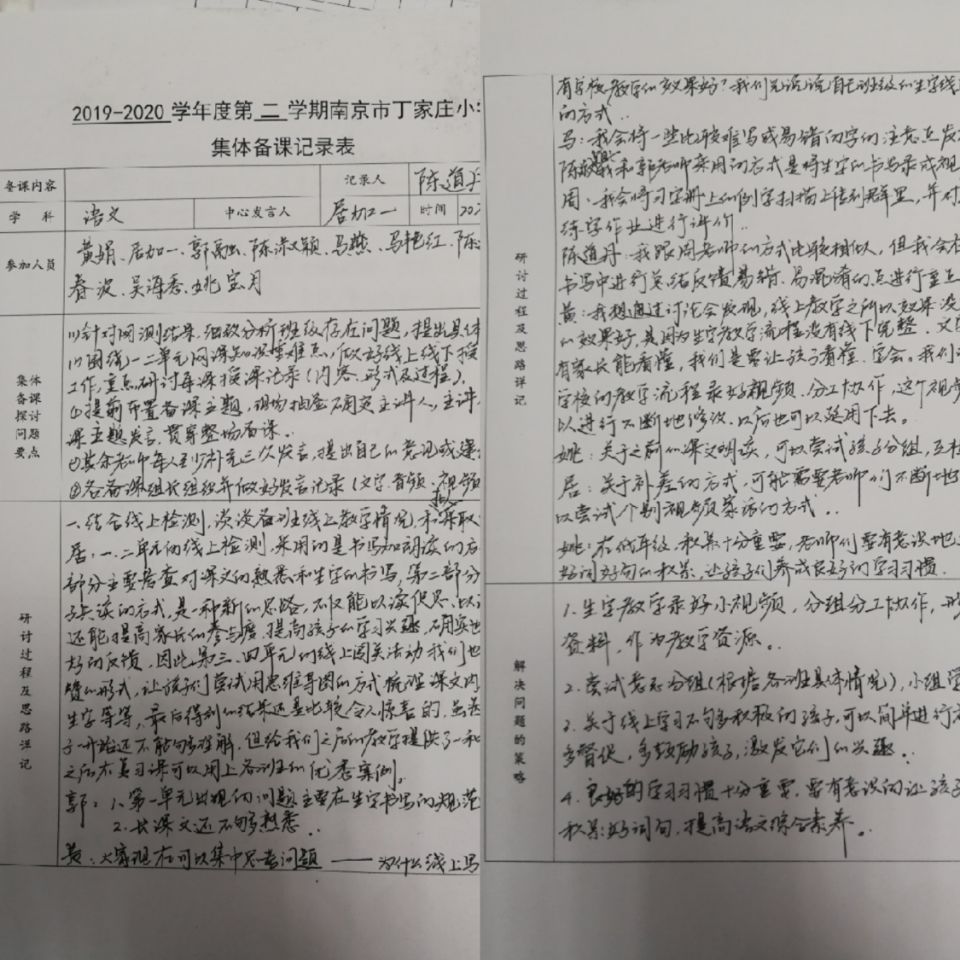 2019-2020 学年度第 二 学期南京市丁家庄小
集体备课记录表
备课内容 记录人 陈道丹
学 科 语文 中心发言人 居加一 时间 202
参加人员 黄娟、居加一、郭 、陈淑颖、马燕、马艳红、陈
春波、吴海香、姚宝月
集体备课探讨问题要点
(1)针对网测结果,细致分析班级存在问题,提出具体
(2)围绕一二单元网课知识重难点,做好线上线下授
工作,重点研讨每课授课记录(内容、形式及过程)。
①提前布置备课主题,现场抽签确定主讲人,主讲
课主题发言,贯穿整场备课。
②其余老师每人至少补充三次发言,提出自己的意见或建
③各备课组长组织并做好发言记录(文字、音频、视频
研讨过程及思路详记
一、结合线上检测,谈谈各班线上教学情况和采取
居:一、二单元的线上检测,采用的是书写加朗读的方
部分主要考查对课文的熟悉和生字的书写,第二部分
子共读的方式,是一种新的思路,不仅能以读促思,以
还能提高家长的参与度,提高孩子的学习兴趣,确实
好的反馈,因此,第三、四单元的线上闯关活动我们也
的形式,让孩子们尝试用思维导图的方式梳理课文内
生字等等,最后得到的结果还是比较令人惊喜的,虽
子一开始还不能够理解,但给我们之后的教学提供了一种
之后在复习课可以用上各班的优秀案例。
郭:1、第一单元出现的问题主要在生字书写的规范
2、长课文还不够熟悉..
黄:大家现在可以集中思考问题——为什么线上写
研讨过程及思路详记
有学校教学的效果好?我们先说说自己班级的生字线
的方式..
马:我会将一些比较难写或易错的字的注意点发
陈淑颖:我和郭老师采用的方式是将生字的书写录成视
周:我会将习字册上的例字扫描上传到群里,并对
练字作业进行评价.
陈道丹:我跟周老师的方式比较相似,但我会在
书写中进行总结反馈易错、易混淆的点进行重点
黄:我想通过讨论会发现,线上教学之所以效果没
的效果好,是因为生字教学流程没有线下完整、又
有家长能看懂,我们是要让孩子看懂、学会。我们
学校的教学流程录好视频,分工协作,这个视频
以进行不断地修改,以后也可以延用下去。
姚:关于之前的课文朗读,可以尝试孩子分组,互相
居:关于补差的方式,可能需要老师们不断地
以尝试个别视频家访的方式..
姚:在低年级,积累十分重要,老师们要有意识地
好词好句的积累,让孩子们养成良好的学习习惯.
解决问题的策略
1.生字教学录好小视频,分组分工协作,形
资料,作为教学资源。
2.尝试意志分组(根据各班具体情况),小组
3.关于线上学习不够积极的孩子,可以简单进行
多督促,多鼓励孩子,激发它们的兴趣..
4.良好的学习习惯十分重要,要有意识的让孩子
积累好词句,提高语文综合素养。.